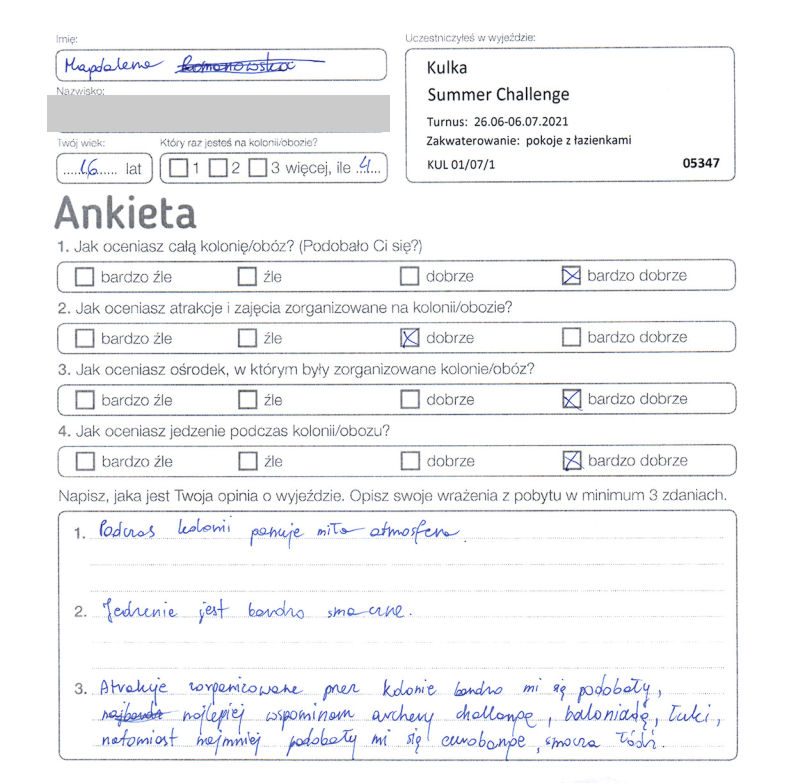 Imię:
Magdalena
Nazwisko:
Twój wiek:
16 lat
Który raz jesteś na kolonii/obozie?
1 2 3 więcej, ile 4
Uczestniczyłeś w wyjeździe:
Kulka
Summer Challenge
Turnus: 26.06-06.07.2021
Zakwaterowanie: pokoje z łazienkami
KUL 01/07/1 05347
Ankieta
1. Jak oceniasz całą kolonię/obóz? (Podobało Ci się?)
bardzo źle źle dobrze bardzo dobrze
2. Jak oceniasz atrakcje i zajęcia zorganizowane na kolonii/obozie?
bardzo źle źle dobrze bardzo dobrze
3. Jak oceniasz ośrodek, w którym były zorganizowane kolonie/obóz?
bardzo źle źle dobrze bardzo dobrze
4. Jak oceniasz jedzenie podczas kolonii/obozu?
bardzo źle źle dobrze bardzo dobrze
Napisz, jaka jest Twoja opinia o wyjeździe. Opisz swoje wrażenia z pobytu w minimum 3 zdaniach.
1. Podczas kolonii panuje miła atmosfera.
2. Jedzenie jest bardzo smaczne.
3. Atrakcje zorganizowane przez kolonie bardzo mi się podobały,
najlepiej wspominam archery challange, baloniadę, łuki,
natomiast najmniej podobały mi się eurobange, smocza łódź.